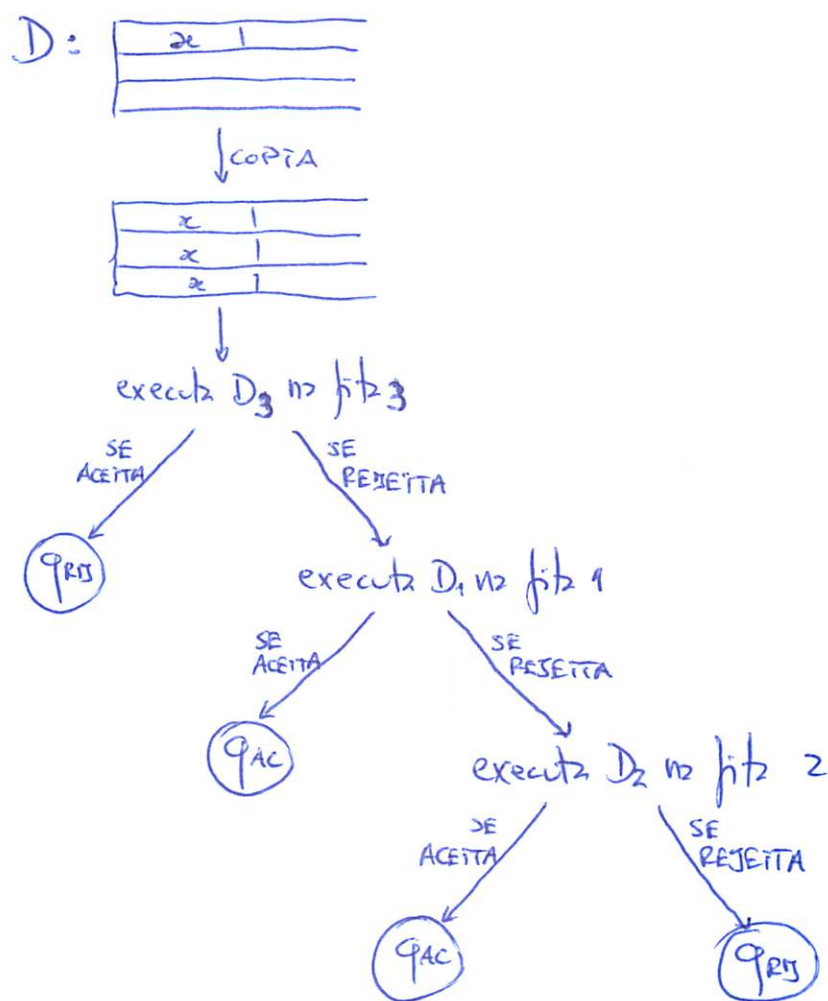 D:
x
COPIA
x
x
x
executa D3 na fita 3
SE ACEITA
SE REJEITA
qREJ
executa D1 na fita 1
SE ACEITA
SE REJEITA
qAC
executa D2 na fita 2
SE ACEITA
SE REJEITA
qAC
qREJ